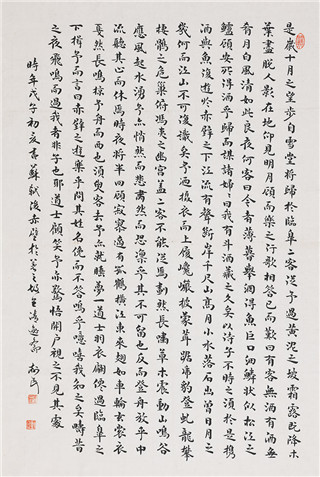 是歲十月之望步自雪堂將歸於臨皋二客從予過黃泥之坂霜露既降木
葉盡脫人影在地仰見明月顧而樂之行歌相答已而歎曰有客無酒有酒無
肴月白風清如此良夜何客曰今者薄暮舉網得魚巨口細鱗狀似松江之
鱸顧安所得酒乎歸而謀諸婦婦曰我有斗酒藏之久矣以待子不時之須於是携
酒與魚復遊於赤壁之下江流有聲斷岸千尺山高月小水落石出曾日月之
幾何而江山不可復識矣予乃攝衣而上履巉巖披蒙茸踞虎豹登虬龍攀
棲鶻之危巢俯馮夷之幽宮蓋二客不能從焉劃然長嘯草木震動山鳴谷
應風起水湧予亦悄然而悲肅然而恐凜乎其不可留也反而登舟放乎中
流聽其止而休焉時夜將半四顧寂寥適有孤鶴橫江東來翅如車輪玄裳衣
戛然長鳴掠予舟而西也須臾客去予亦就睡夢一道士羽衣翩僊過臨皋之
下揖予而言曰赤壁之遊樂乎問其姓名俛而不答嗚呼噫嘻我知之矣疇昔
之夜飛鳴而過我者非子也耶道士顧笑予亦驚悟開戶視之不見其處
時年戊午初夏書蘇軾後赤壁於